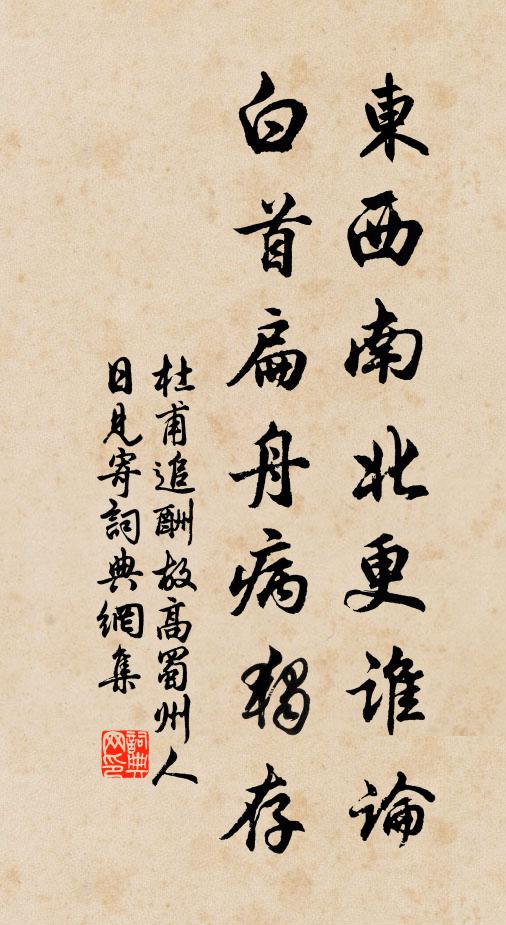 東西南北更誰論
白首扁舟病獨存
杜甫追酬故高蜀州人
日見寄詞典網集
詞典網印